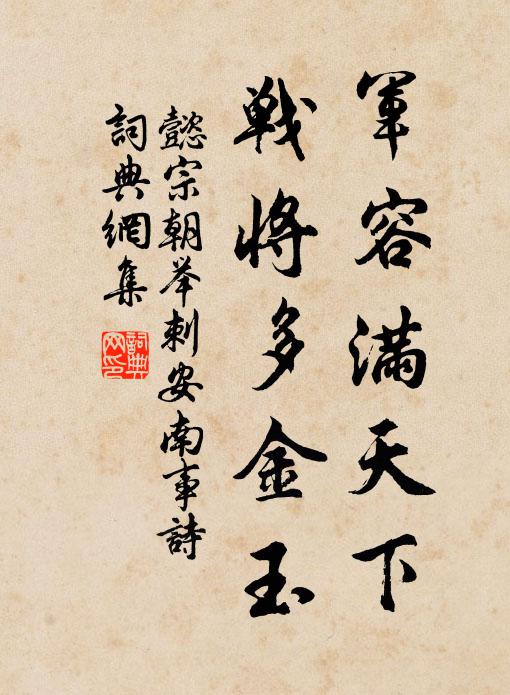 軍容滿天下
戰將多金玉
懿宗朝舉刺安南事詩
詞典網集
詞典網印